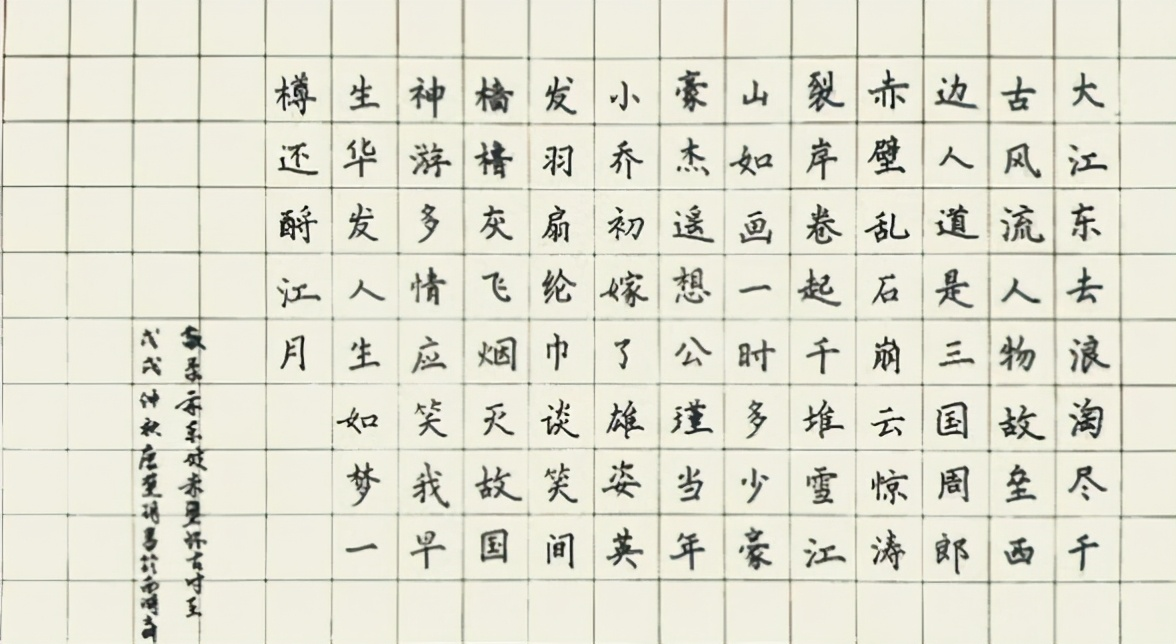 大江东去浪淘尽千
古风流人物故垒西
边人道是三国周郎
赤壁乱石崩云惊涛
裂岸卷起千堆雪江
山如画一时多少豪
豪杰遥想公瑾当年
小乔初嫁了雄姿英
发羽扇纶巾谈笑间
樯橹灰飞烟灭故国
神游多情应笑我早
生华发人生如梦一
樽还酹江月
赤壁怀古时至
戊戌仲秋